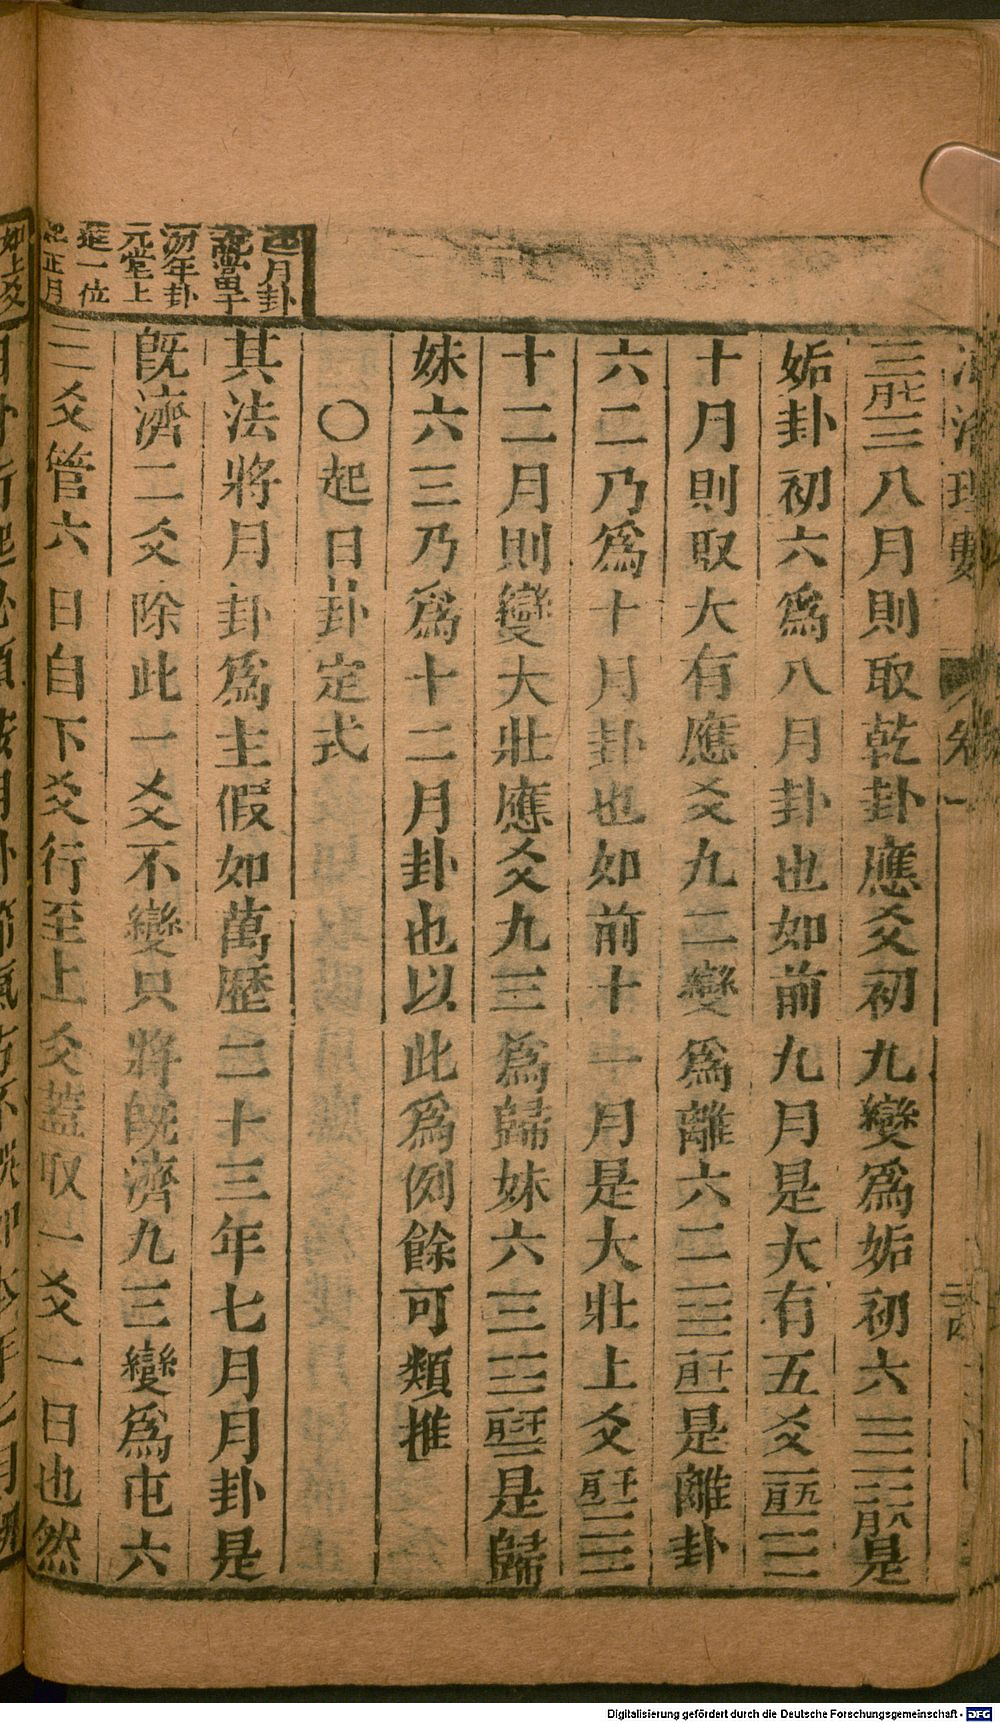 卷一
七月八月則取乾卦應爻初九變爲姤初六八月是
姤卦初六爲八月卦也如前九月是大有五爻
十月則取大有應爻九二變爲離六二十月是離卦
六二乃爲十月卦也如前十一月是大壯上爻
十二月則變大壯應爻九三爲歸妹六三是歸
妹六三乃爲十二月卦也以此爲例餘可類推
○起日卦定式
月卦
年卦
元堂上
進一位
起正月
其法將月卦爲主假如萬歷二十三年七月月卦是
旣濟二爻除此一爻不變只將旣濟九三變爲屯六
三爻管六日自下爻行至上爻蓋取一爻一日也然
Digitalisierung gefördert durch die Deutsche Forschungsgemeinschaft - DFG